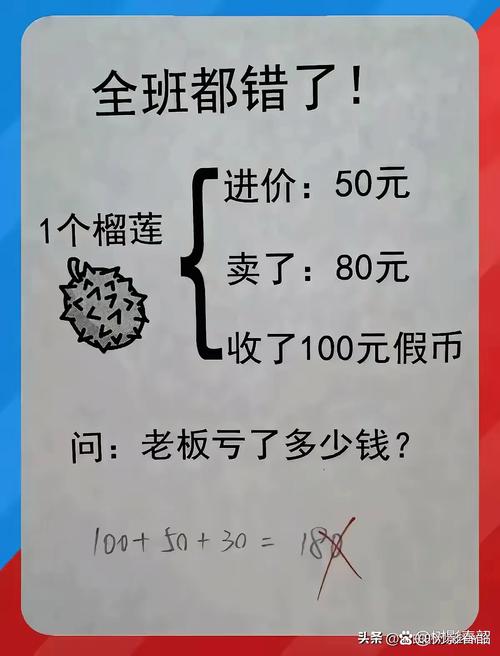 全班都错了！
1个榴莲
进价：50元
卖了：80元
收了100元假币
问：老板亏了多少钱？
100+50+30=180
头条 @树影春韶